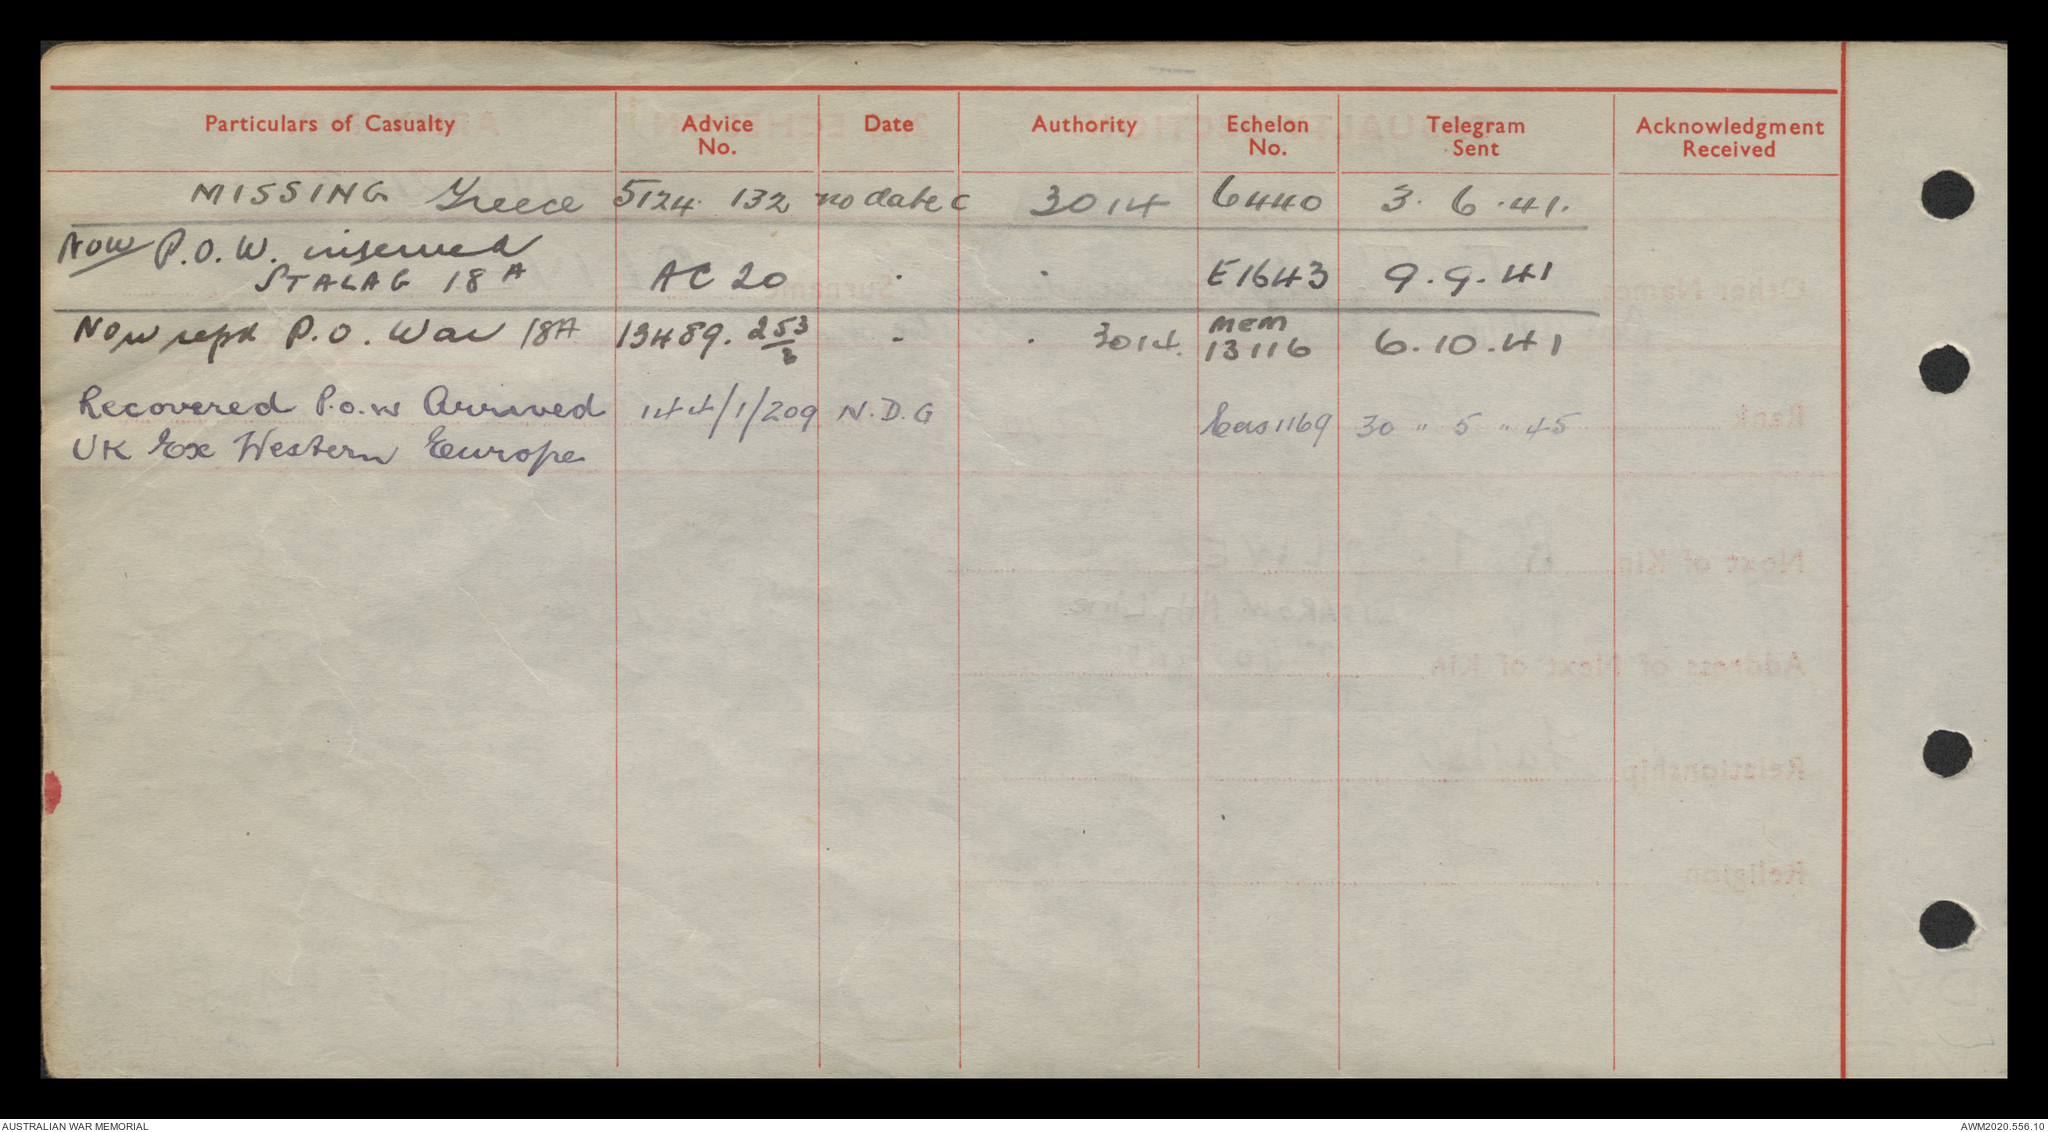 Particulars of Casualty Advice No. Date Authority Echelon No. Telegram Sent Acknowledgment Received
MISSING Greece 5124. 132 no date C 3014 6440 3. 6. 41.
Now P.O.W. interned
STALAG 18A AC 20 - . E1643 9.9.41
Now repd P.O. War 18A 13489. 253/3 - . 3014. mem 13116 6.10.41
Recovered P.o.w Arrived 144/1/209 N.D.G Cas1169 30 " 5 " 45
UK Ex Western Europe
AUSTRALIAN WAR MEMORIAL
AWM2020.556.10